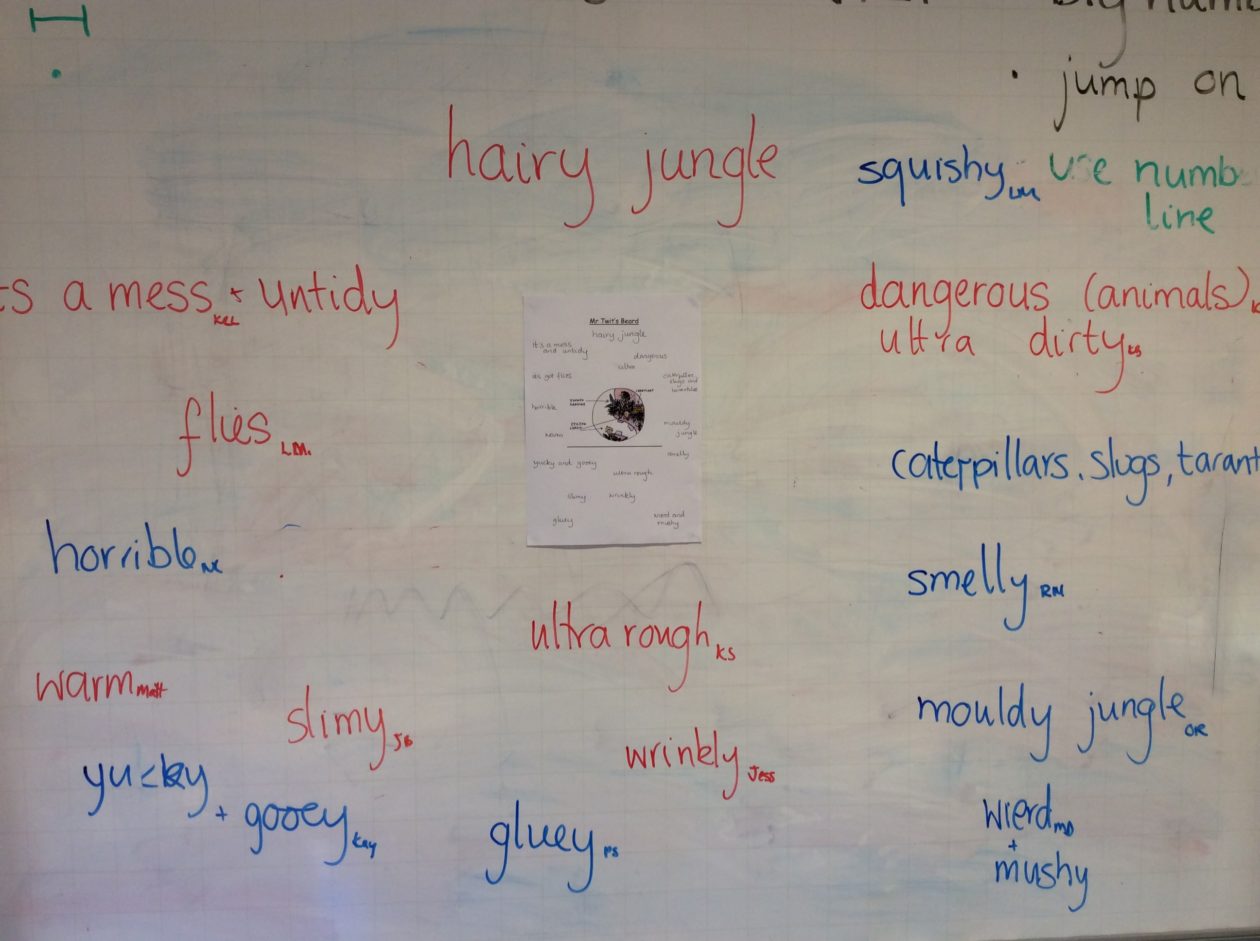 jump on
hairy jungle
squishy LM
use numb
line
ts a mess KEL + untidy
dangerous (animals)
ultra dirty KS
flies L.M.
caterpillars. slugs, tarant
horrible
smelly RN
ultra rough KS
warm Matt
slimy JB
mouldy jungle OR
wrinkly Jess
yucky + gooey Kay
gluey PS
wierd MD
+
mushy
Mr Twit's Beard
hairy jungle
it's a mess
and untidy
dangerous
ultra
its got flies
caterpillar
slugs and
horrible
warm
mouldy
jungle
smelly
yucky and gooey
ultra rough
slimy
wrinkly
gluey
wierd and
mushy